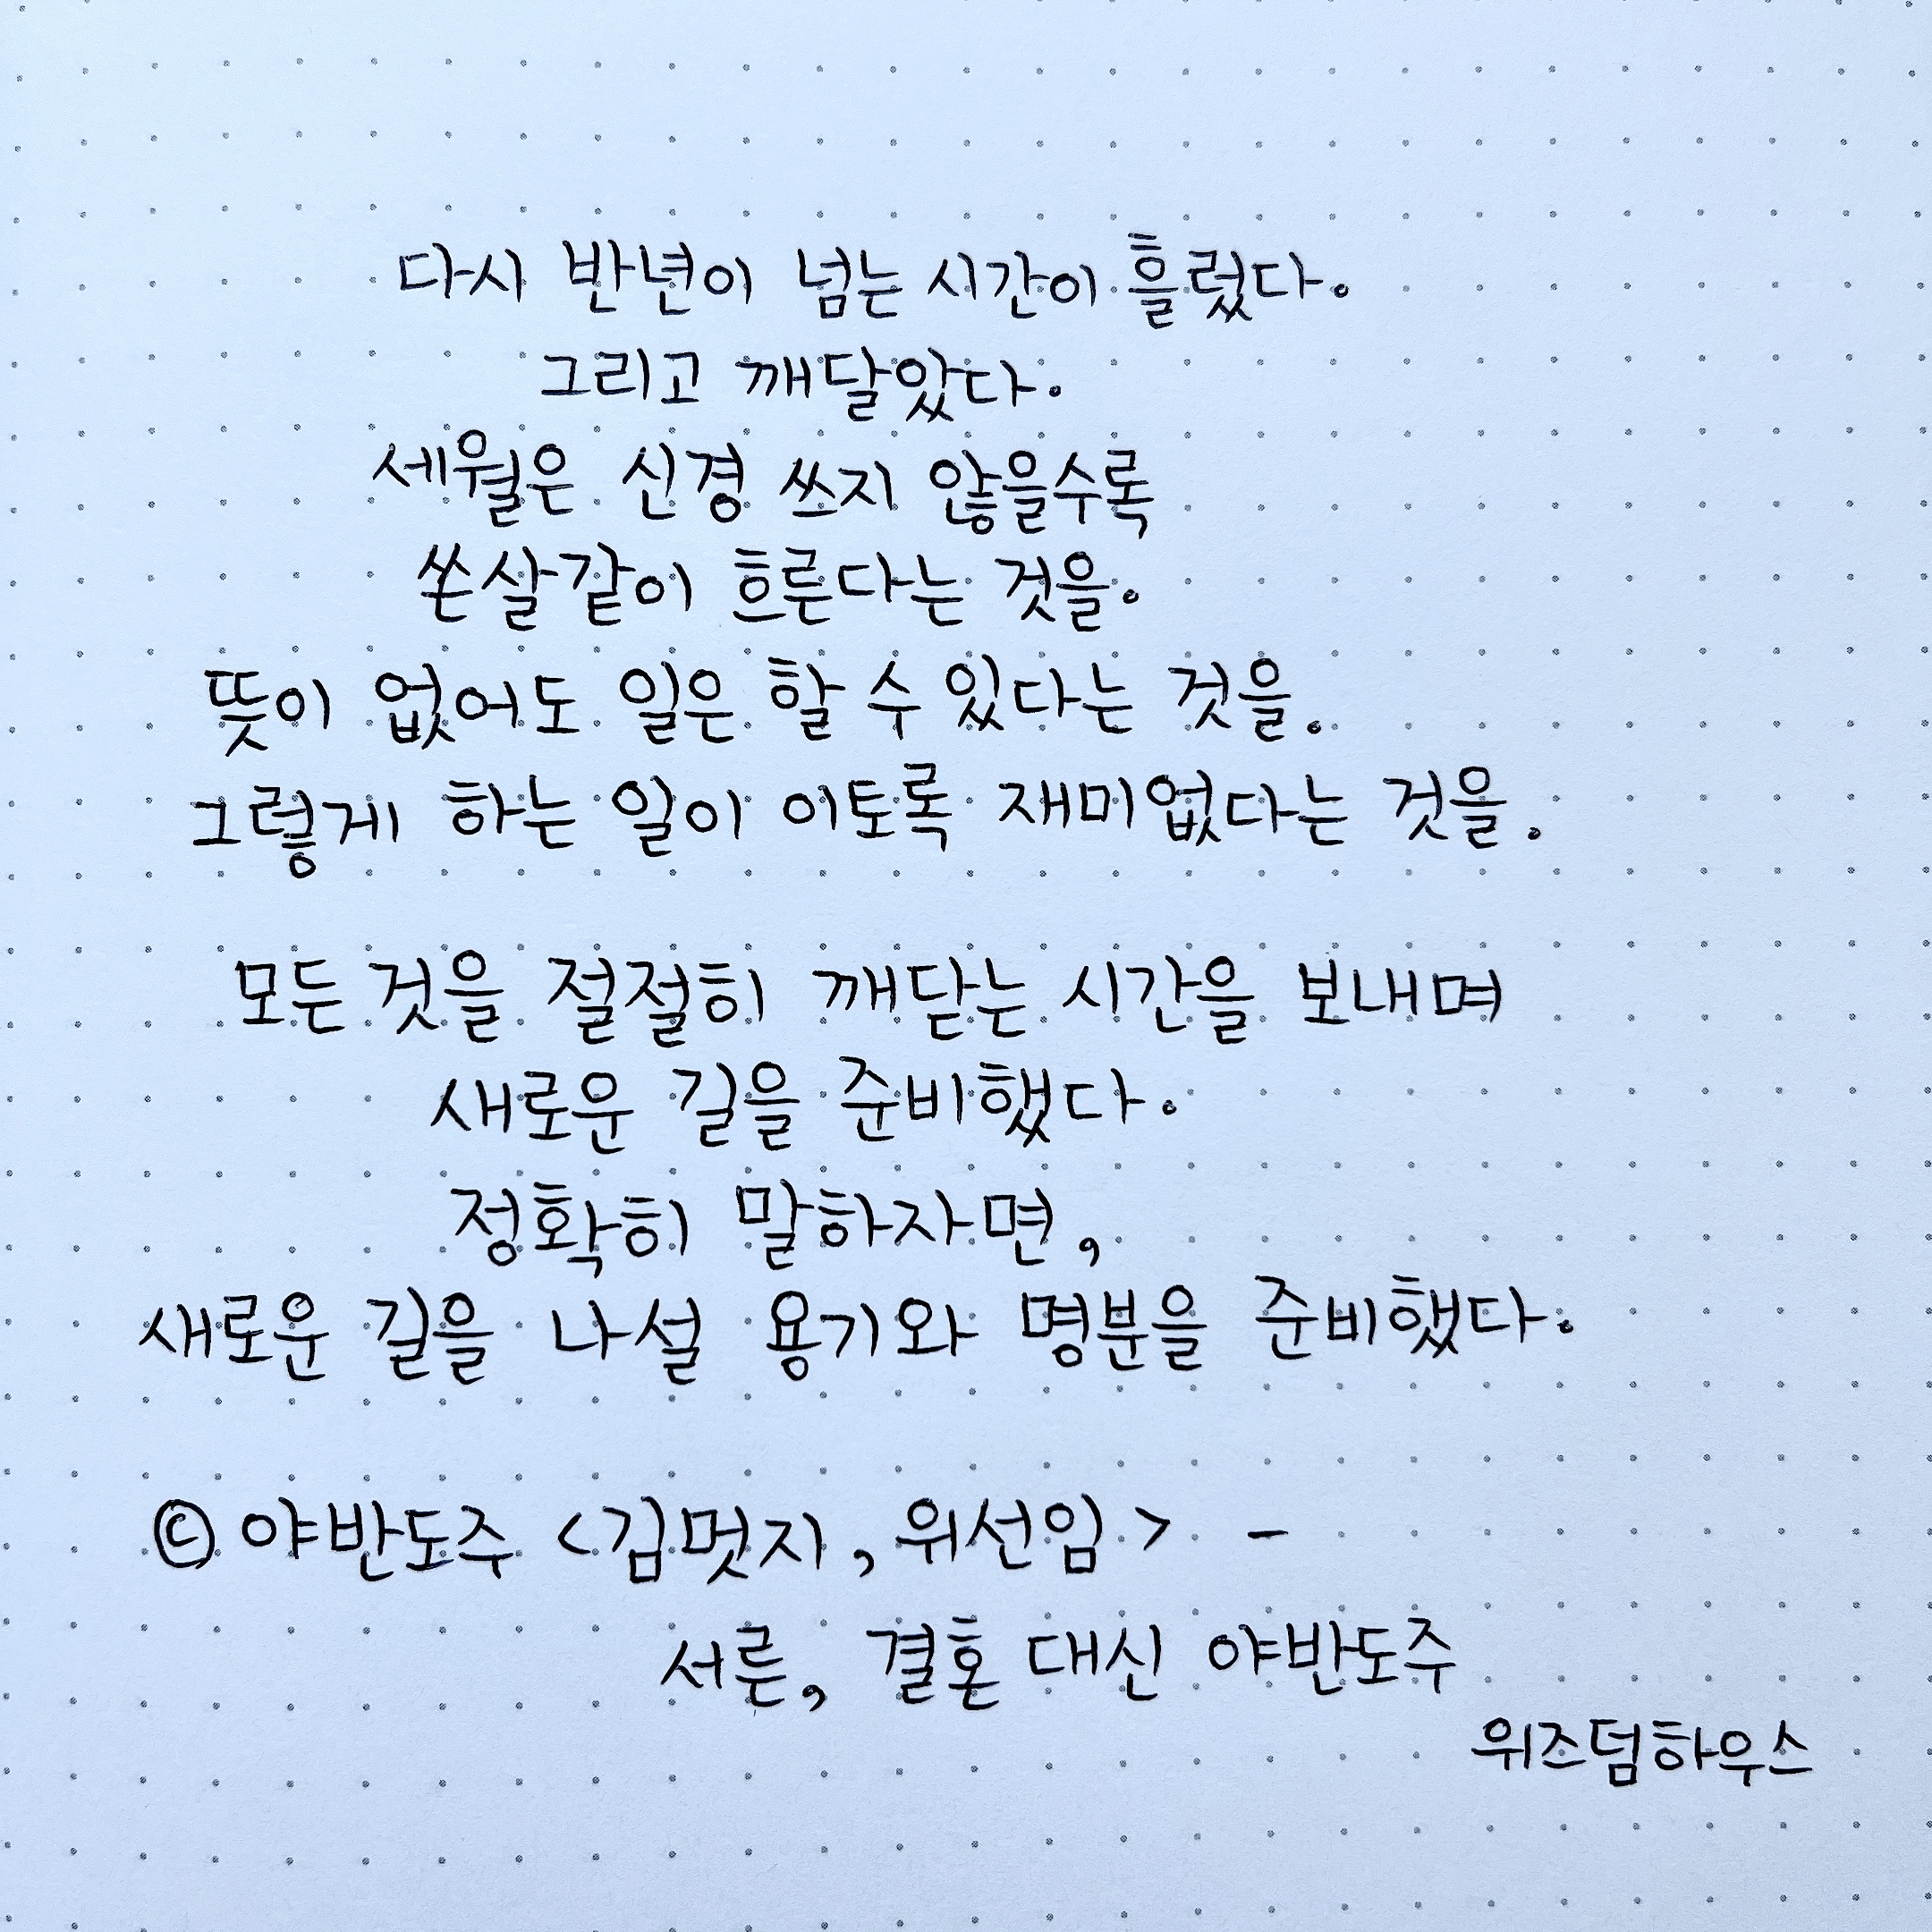 다시 반년이 넘는 시간이 흘렀다.
그리고 깨달았다.
세월은 신경 쓰지 않을수록
쏜살같이 흐른다는 것을.
뜻이 없어도 일은 할 수 있다는 것을.
그렇게 하는 일이 이토록 재미없다는 것을.
모든 것을 절절히 깨닫는 시간을 보내며
새로운 길을 준비했다.
정확히 말하자면,
새로운 길을 나설 용기와 명분을 준비했다.
© 야반도주 <김멋지, 위선임> -
서른, 결혼 대신 야반도주
위즈덤하우스